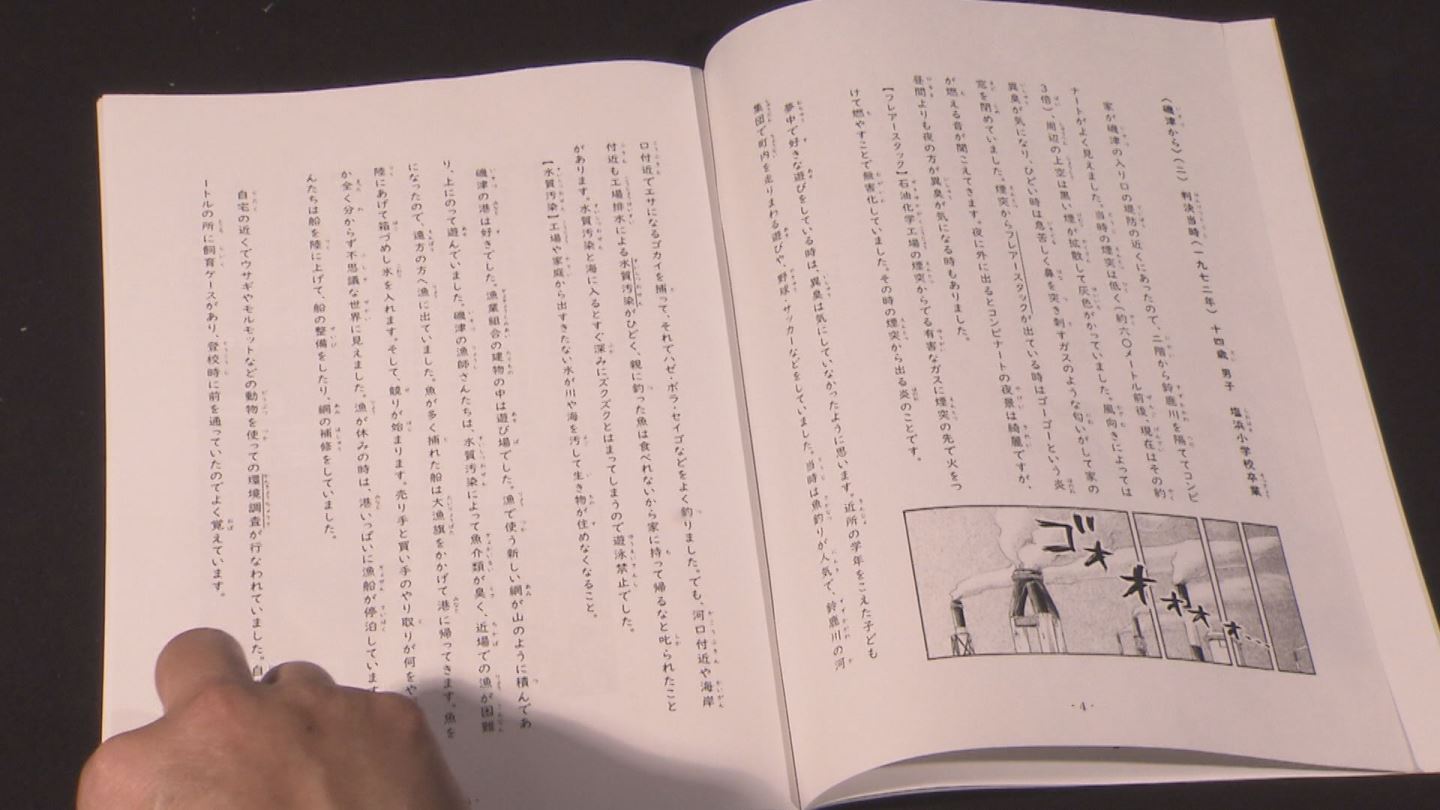 〈磯津から〉(二) 判決当時(一九七二年) 十四歳 男子 塩浜小学校卒業
家が磯津の入り口の堤防の近くにあったので、二階から鈴鹿川を隔ててコンビ
ナートがよく見えました。当時の煙突は低く(約六〇メートル前後、現在はその約
3倍)、周辺の上空は黒い煙が拡散して灰色がかっていました。風向きによっては
異臭が気になり、ひどい時は息苦しく鼻を突き刺すガスのような匂いがして家の
窓を閉めていました。煙突からフレアースタックが出ている時はゴーゴーという炎
が燃える音が聞こえてきます。夜に外に出るとコンビナートの夜景は綺麗ですが、
昼間よりも夜の方が異臭が気になる時もありました。
【フレアースタック】石油化学工場の煙突からでる有害なガスに煙突の先で火をつ
けて燃やすことで無害化していました。その時の煙突から出る炎のことです。
夢中で好きな遊びをしている時は、異臭は気にしていなかったように思います。近所の学年をこえた子ども
集団で町内を走りまわる遊びや、野球・サッカーなどをしていました。当時は魚釣りが人気で、鈴鹿川の河
ゴォォォォォ…
-4-
口付近でエサになるゴカイを捕って、それでハゼ・ボラ・セイゴなどをよく釣りました。でも、河口付近や海岸
付近も工場排水による水質汚染がひどく、親に釣った魚は食べれないから家に持って帰るなと叱られたこと
があります。水質汚染と海に入るとすぐ深みにズクズクとはまってしまうので遊泳禁止でした。
【水質汚染】工場や家庭から出すきたない水が川や海を汚して生き物が住めなくなること。
磯津の港は好きでした。漁業組合の建物の中は遊び場でした。漁で使う新しい網が山のように積んであ
り、上にのって遊んでいました。磯津の漁師さんたちは、水質汚染によって魚介類が臭く、近場での漁が困難
になったので、遠方の方へ漁に出ていました。魚が多く捕れた船は大漁旗をかかげて港に帰ってきます。魚を
陸にあげて箱づめし氷を入れます。そして、競りが始まります。売り手と買い手のやり取りが何をや
か全く分からず不思議な世界に見えました。漁が休みの時は、港いっぱいに漁船が停泊しています
んたちは船を陸に上げて、船の整備をしたり、網の補修をしていました。
自宅の近くでウサギやモルモットなどの動物を使っての環境調査が行なわれていました。自
ートルの所に飼育ケースがあり、登校時に前を通っていたのでよく覚えています。